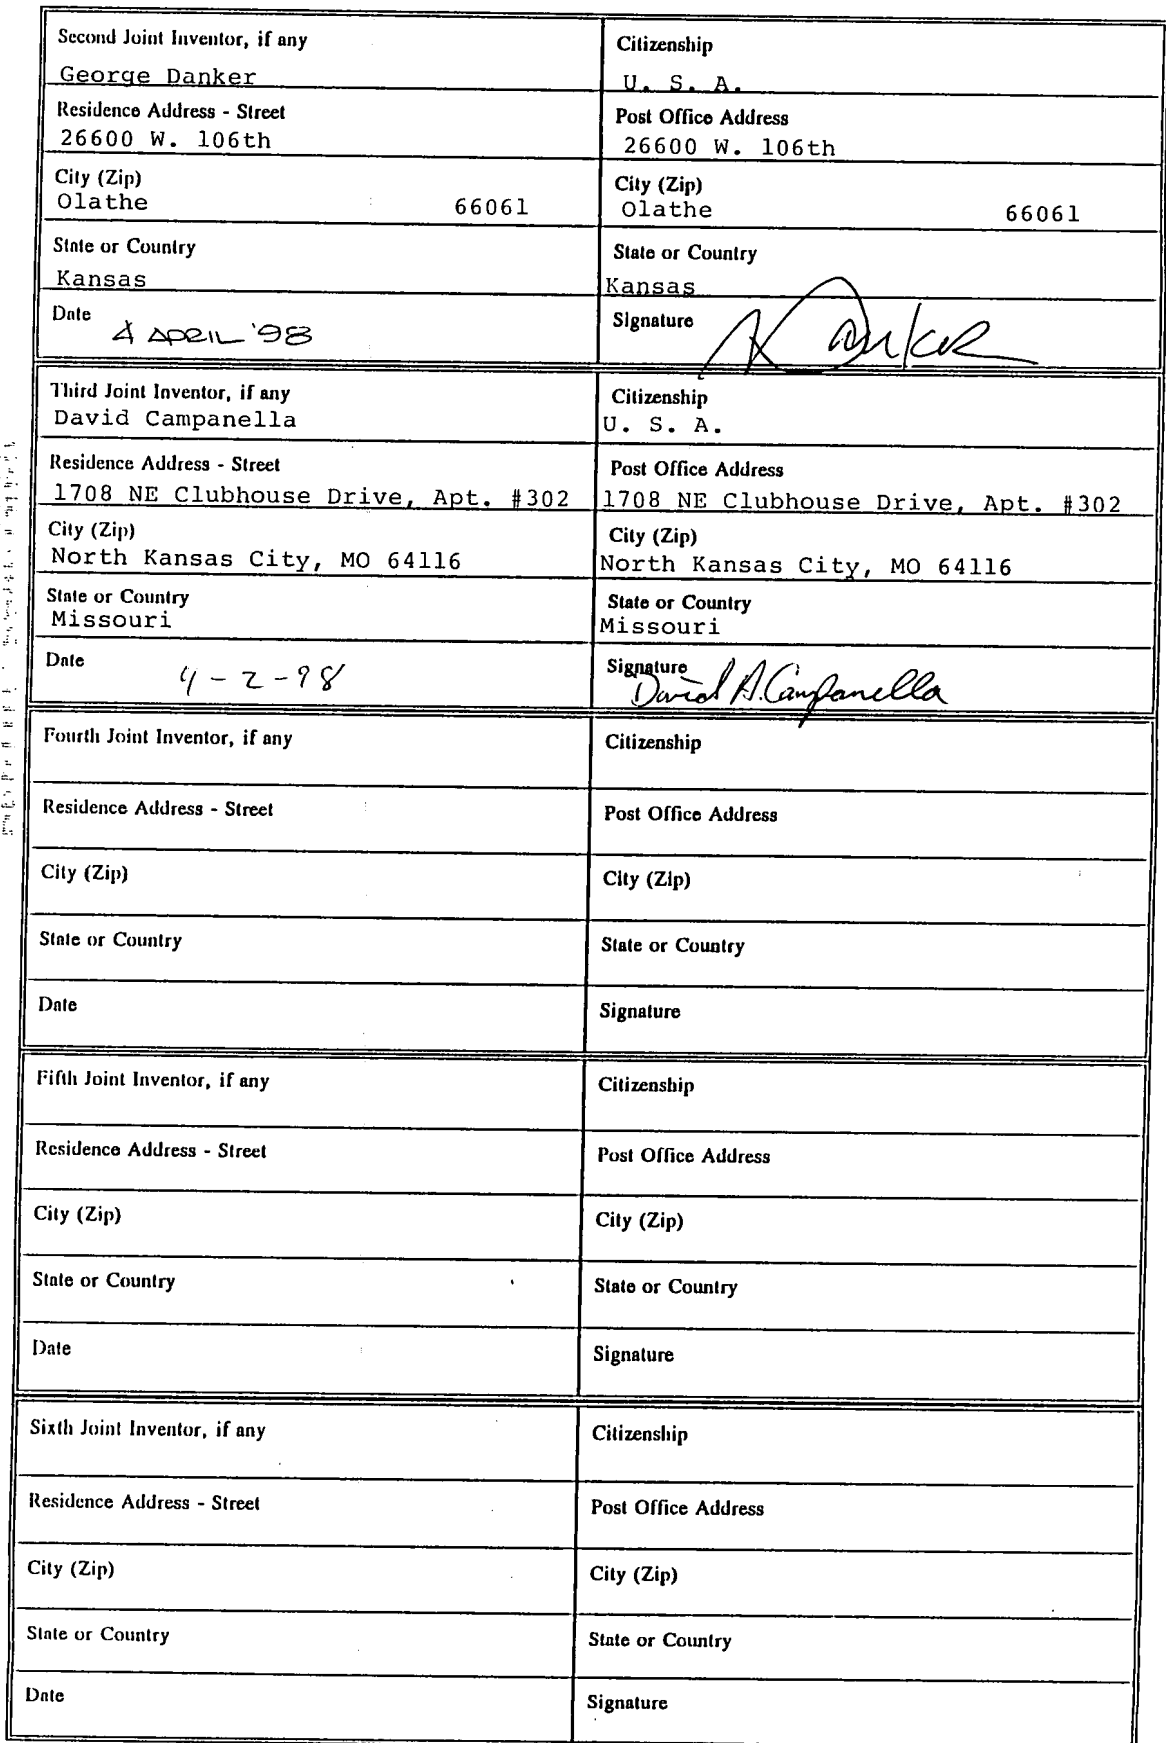 Second Joint Inventor, if any
George Danker
Citizenship
U. S. A.
Residence Address - Street
26600 W. 106th
Post Office Address
26600 W. 106th
City (Zip)
Olathe 66061
City (Zip)
Olathe 66061
State or Country
Kansas
State or Country
Kansas
Date 4 APRIL '98
Signature Danker
Third Joint Inventor, if any
David Campanella
Citizenship
U. S. A.
Residence Address - Street
1708 NE Clubhouse Drive, Apt. #302
Post Office Address
1708 NE Clubhouse Drive, Apt. #302
City (Zip)
North Kansas City, MO 64116
City (Zip)
North Kansas City, MO 64116
State or Country
Missouri
State or Country
Missouri
Date 4-2-98
Signature David A. Campanella
Fourth Joint Inventor, if any
Citizenship
Residence Address - Street
Post Office Address
City (Zip)
City (Zip)
State or Country
State or Country
Date
Signature
Fifth Joint Inventor, if any
Citizenship
Residence Address - Street
Post Office Address
City (Zip)
City (Zip)
State or Country
State or Country
Date
Signature
Sixth Joint Inventor, if any
Citizenship
Residence Address - Street
Post Office Address
City (Zip)
City (Zip)
State or Country
State or Country
Date
Signature